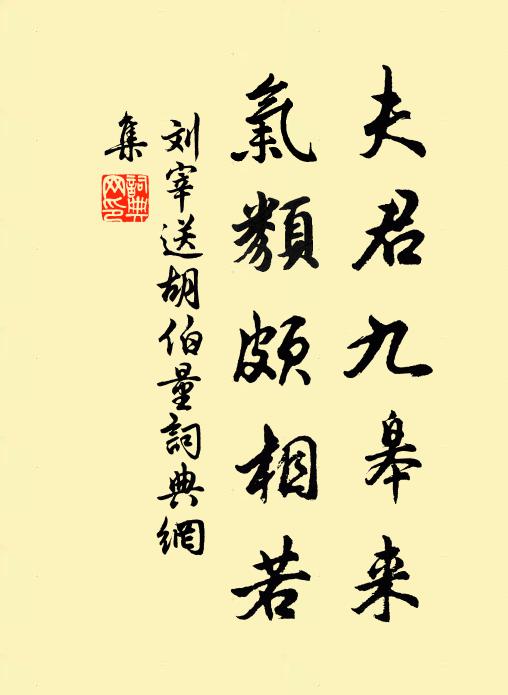 夫君九皋来
氣類頗相若
刘宰送胡伯量詞典網
集
詞典
网印